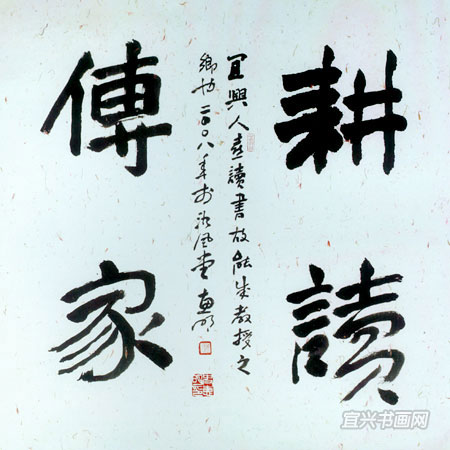 耕讀
宜興人喜讀書故能成教授之
鄉 二〇〇八年於 風堂
傳家
宜兴书画网